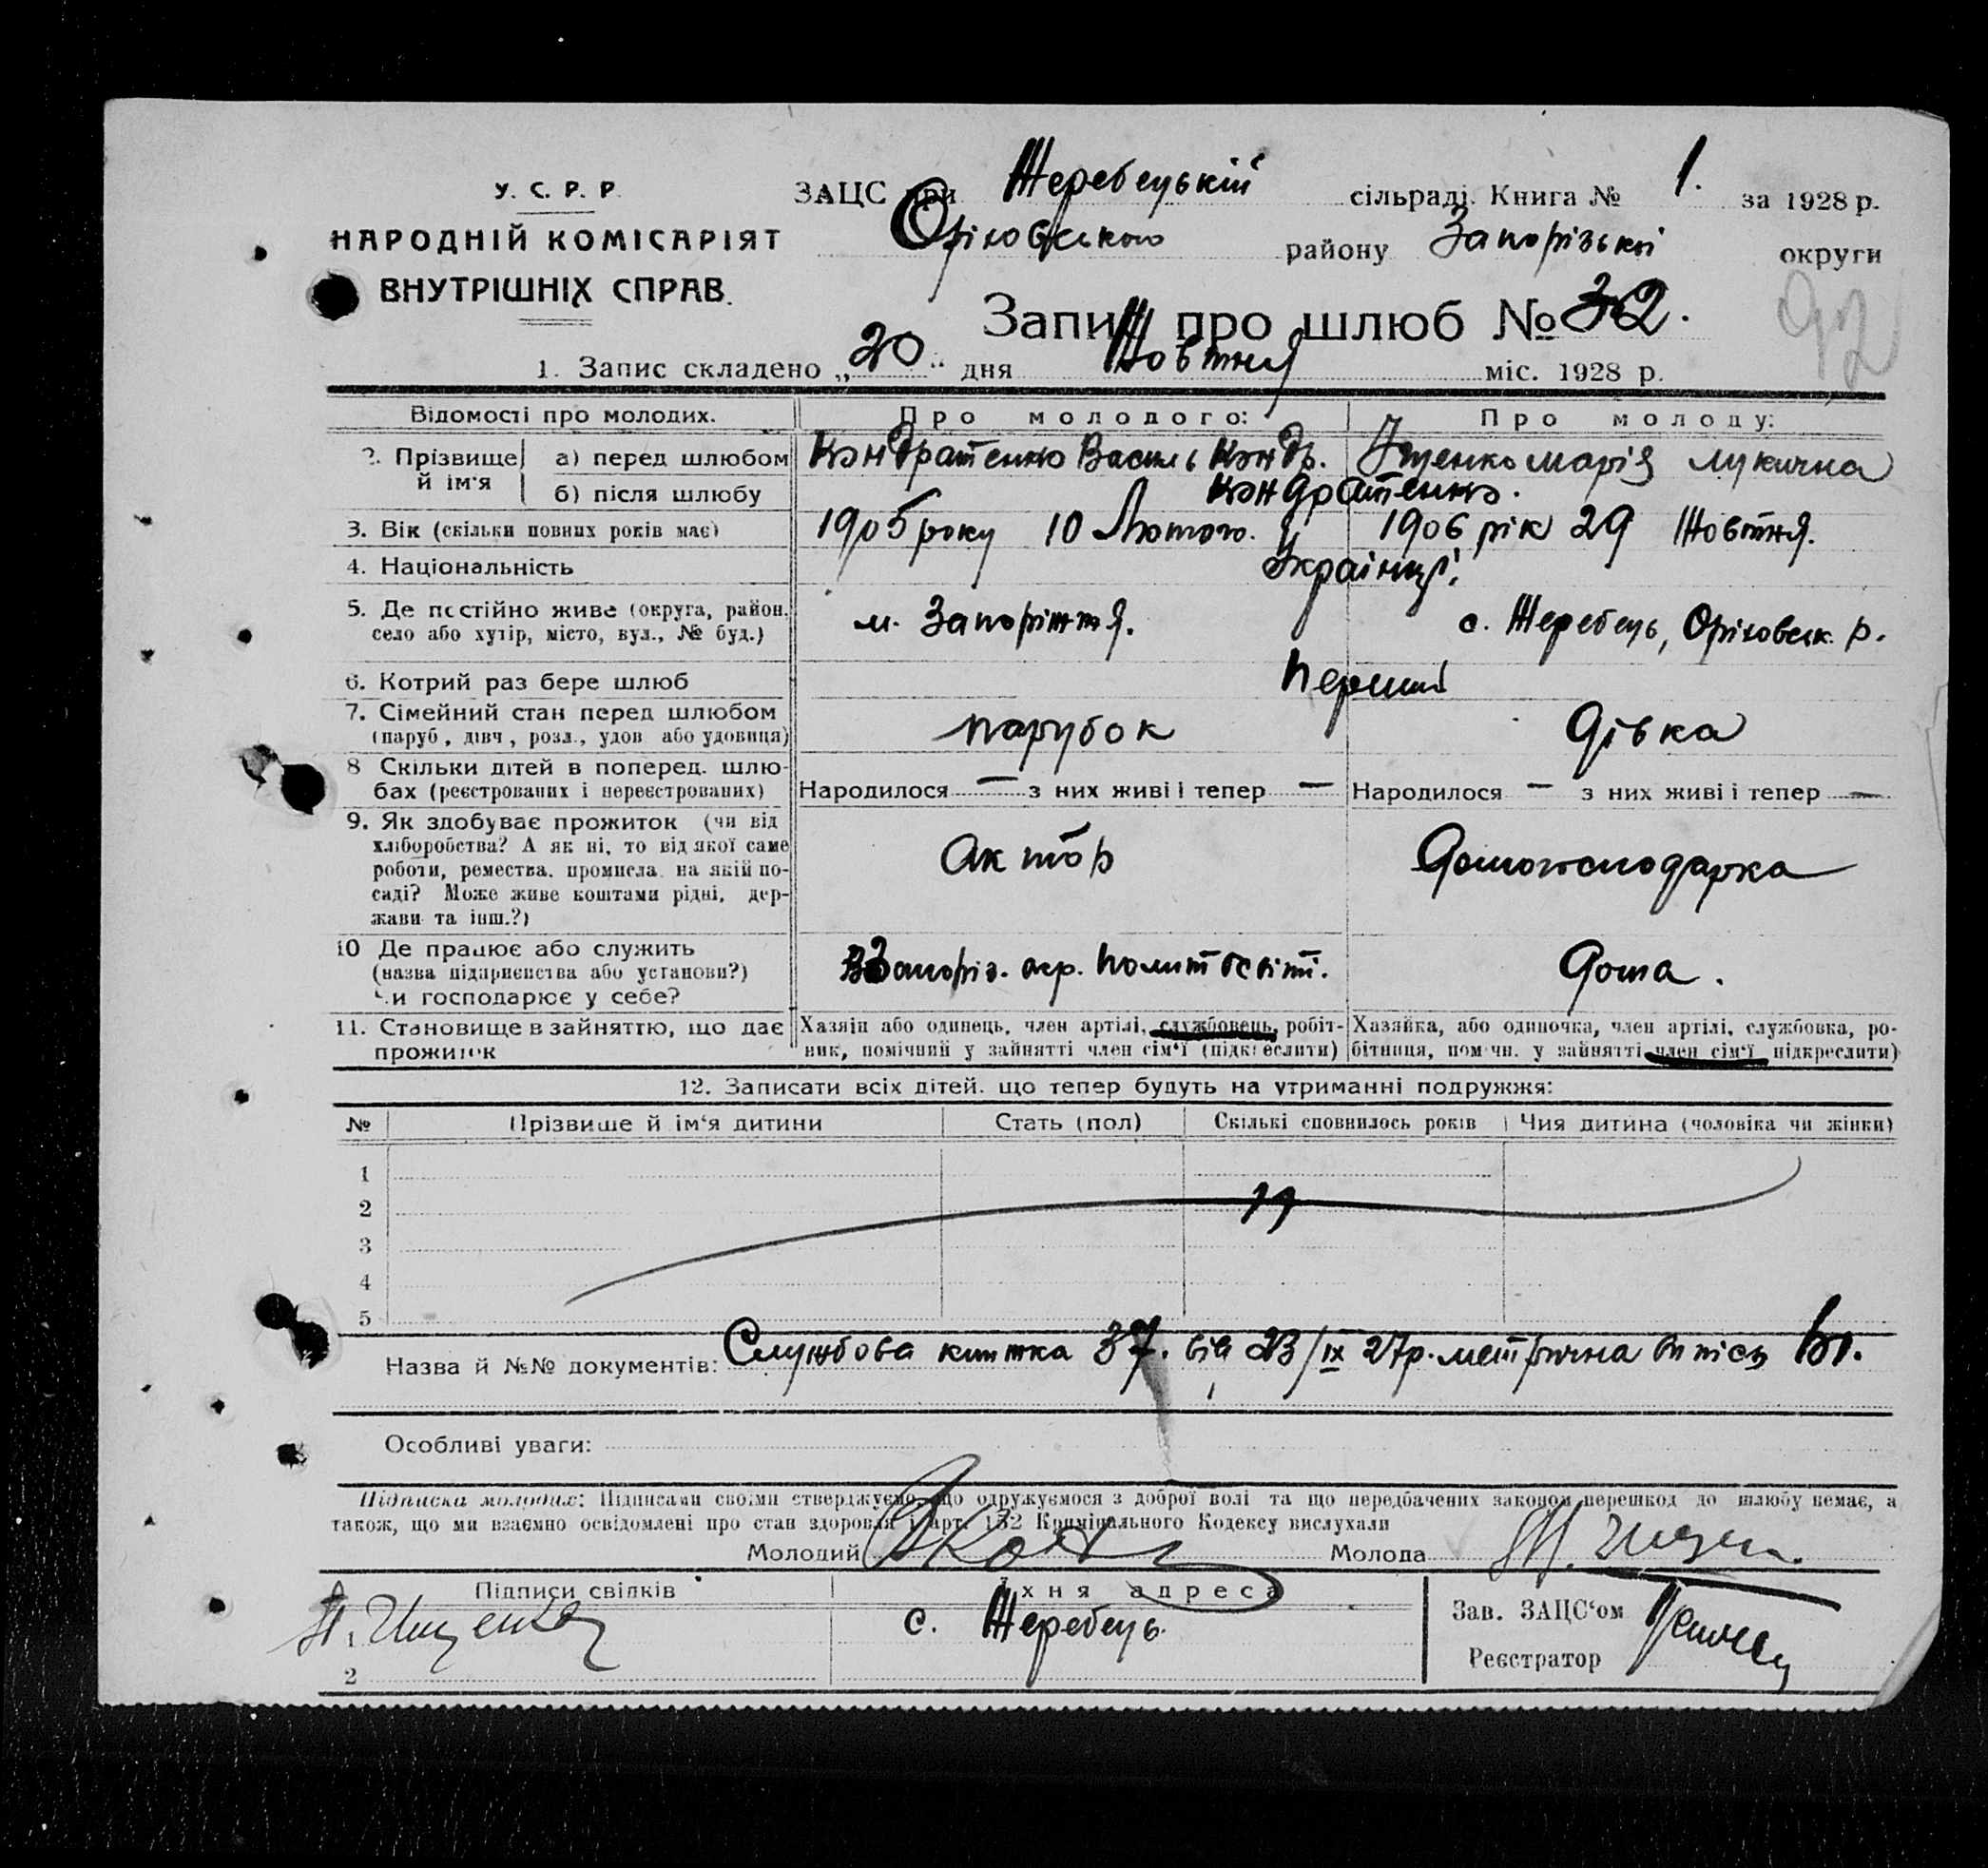 У. С. Р. Р.
НАРОДНІЙ КОМІСАРІЯТ
ВНУТРІШНІХ СПРАВ.
ЗАЦС при Жеребецькій сільраді. Книга № 1. за 1928 р.
Оріховського району Запорізької округи
92
Запис про шлюб № 32.
1. Запис складено „20“ дня Жовтня міс. 1928 р.
Відомості про молодих. Про молодого: Про молоду:
2. Прізвище й ім'я а) перед шлюбом Кондратенко Василь Кондр. Іщенко Марія Лукична
б) після шлюбу Кондратенко.
3. Вік (скільки повних років має) 1905 року 10 Лютого. 1906 рік 29 Жовтня.
4. Національність Українці.
5. Де постійно живе (округа, район, село або хутір, місто, вул., № буд.) м. Запоріжжя. с. Жеребець, Оріховськ. р.
6. Котрий раз бере шлюб Перший
7. Сімейний стан перед шлюбом (паруб., дівч., розл., удов. або удовиця) парубок дівка
8 Скільки дітей в поперед. шлюбах (реєстрованих і нереєстрованих) Народилося — з них живі і тепер — Народилося — з них живі і тепер —
9. Як здобуває прожиток (чи від хліборобства? А як ні, то від якої саме роботи, ремества, промисла, на якій посаді? Може живе коштами рідні, держави та інш.?) Актор Домогосподарка
10 Де працює або служить (назва підприємства або установи?) Чи господарює у себе? Запоріз. окр. Политосвіт. Дома.
11. Становище в зайняттю, що дає прожиток
Хазяїн або одинець, член артілі, службовець, робітник, помічний у зайнятті член сім'ї (підкреслити)
Хазяйка, або одиночка, член артілі, службовка, робітниця, помічн. у зайнятті член сім'ї підкреслити)
12. Записати всіх дітей, що тепер будуть на утриманні подружжя:
№ Прізвище й ім'я дитини Стать (пол) Скількі сповнилось років Чия дитина (чоловіка чи жінки)
1
2
3
4
5
Назва й №№ документів: Службова книжка 37. від 23/ІХ 27р. метрична
Особливі уваги:
Підписка молодих: Підписами своїми стверджуємо, що одружуємося з доброї волі та що передбачених законом перешкод до шлюбу немає, а
також, що ми взаємно освідомлені про стан здоровля і арт. 152 Кримінального Кодексу вислухали
Молодий Молода
Підписи свідків Їхня адреса
1 Ищенко с. Жеребець.
2
Зав. ЗАЦС'ом
Реєстратор